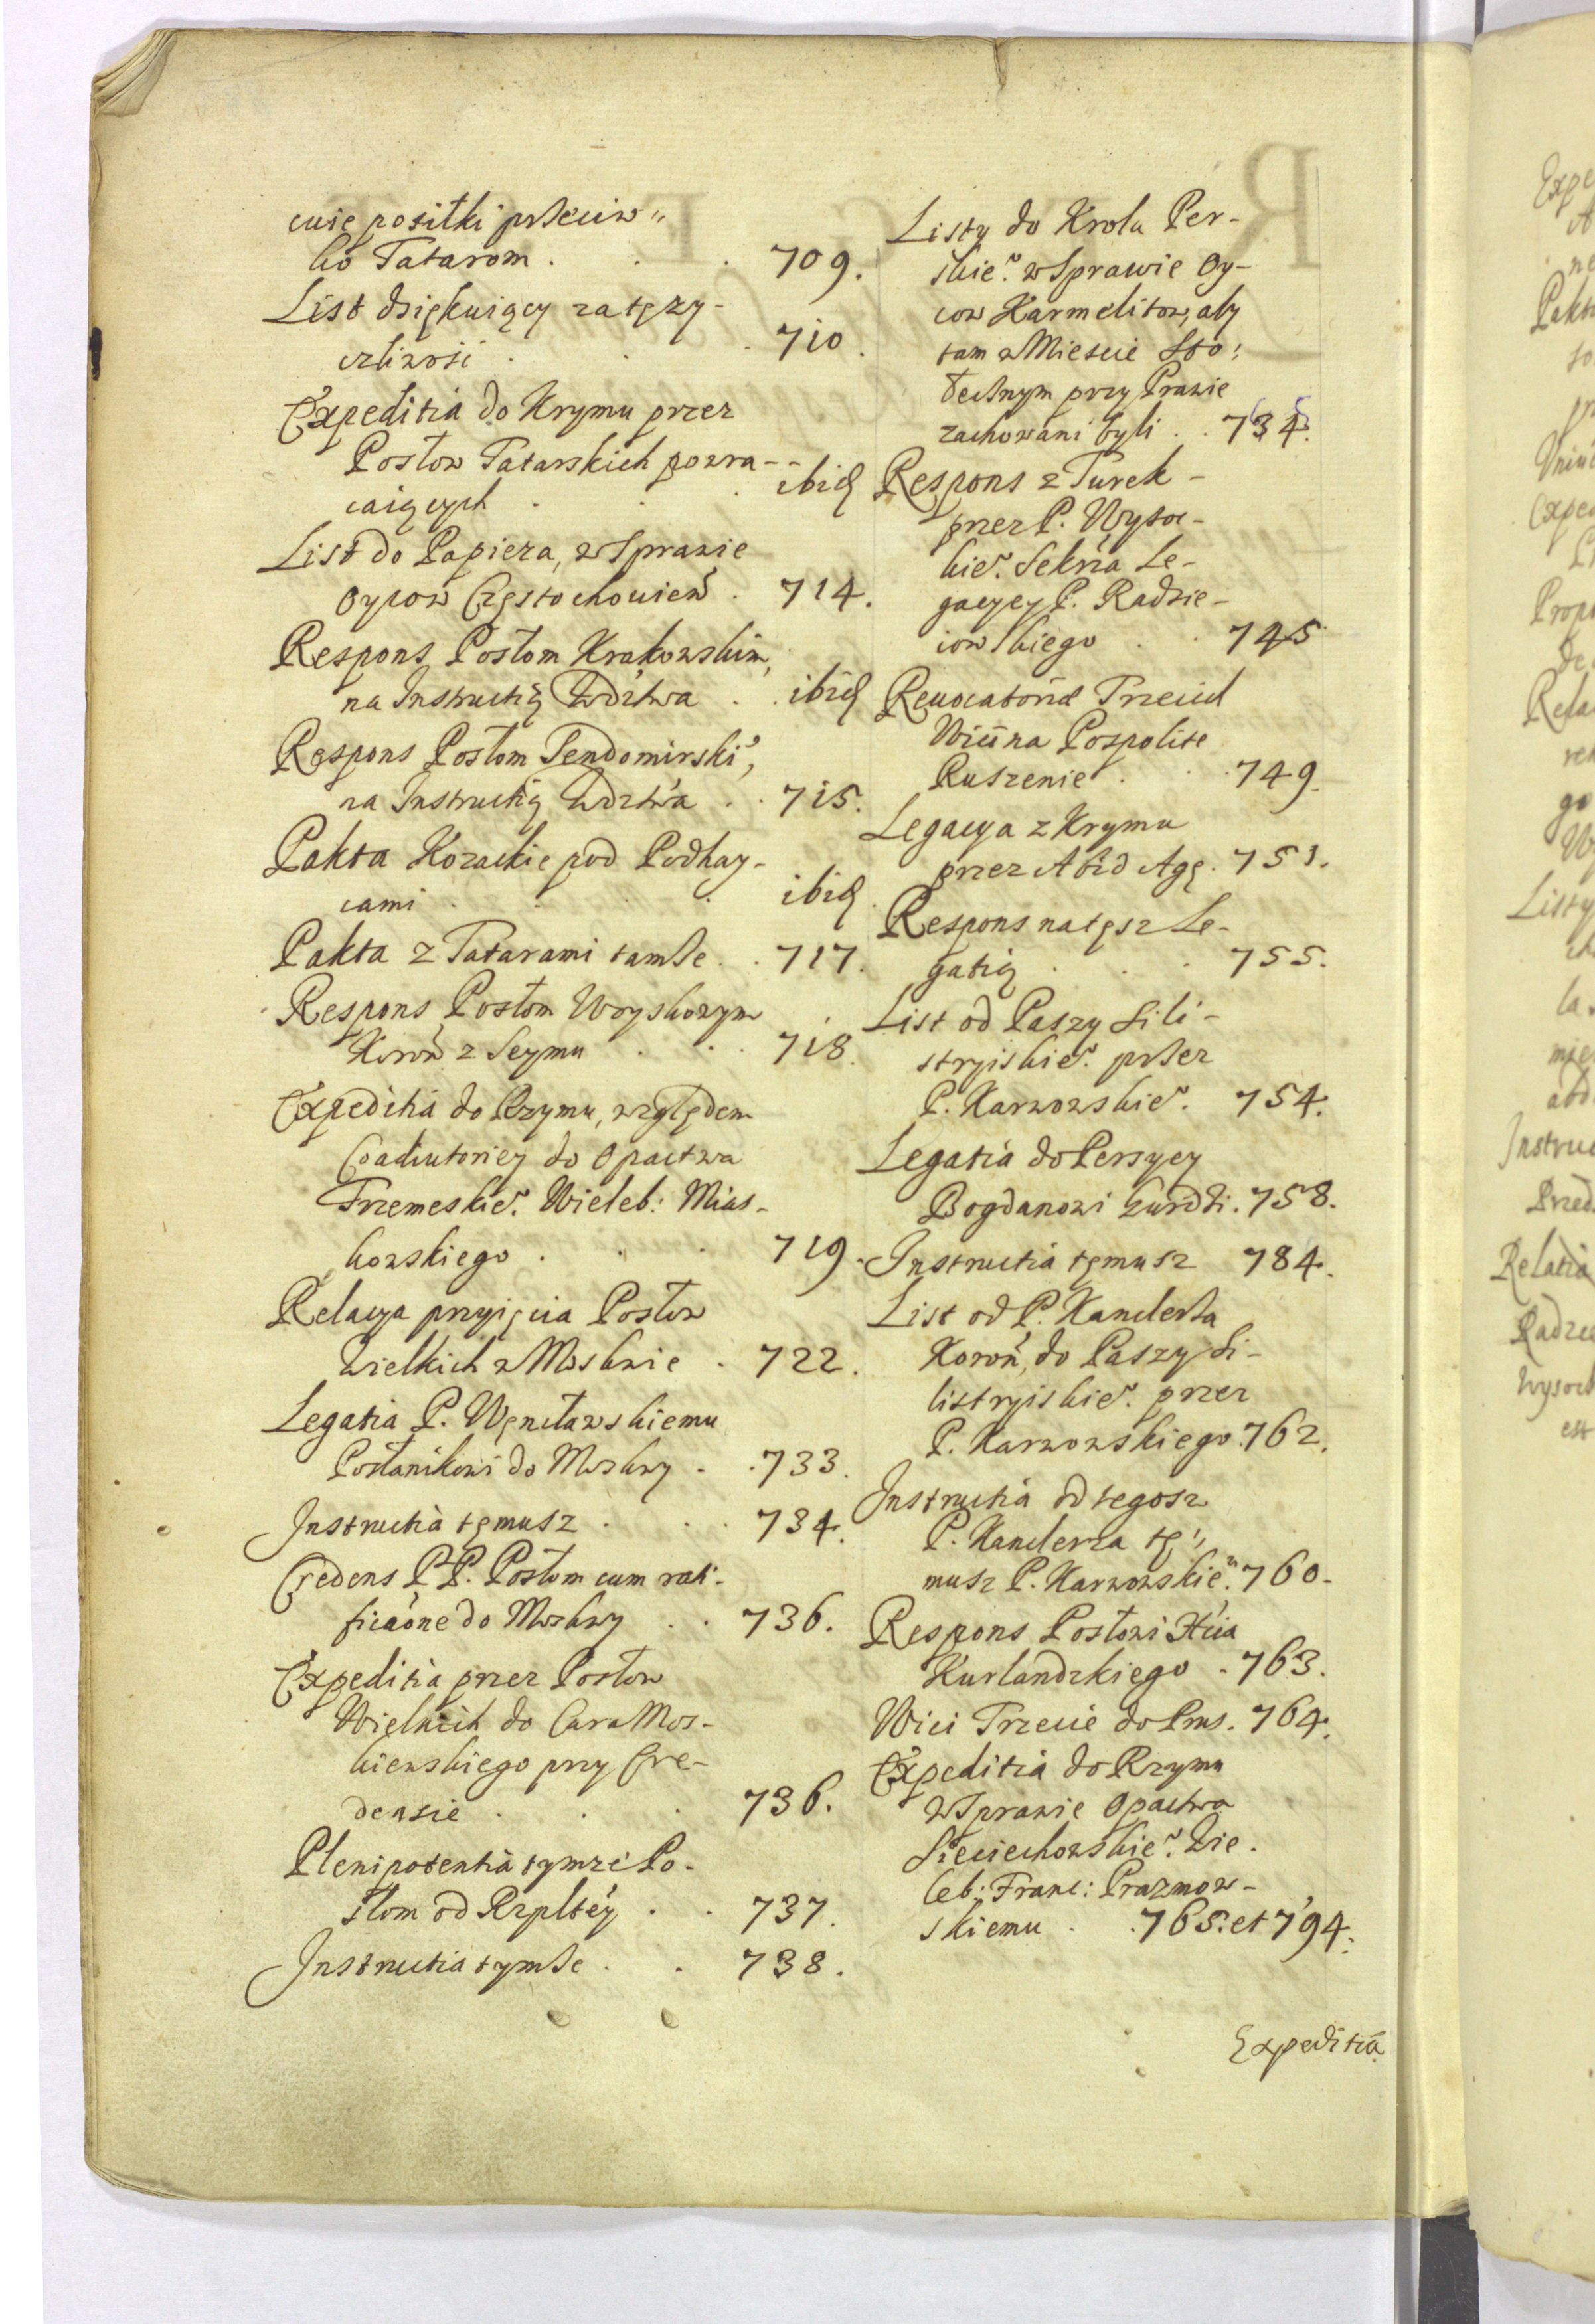 cuie posiłki przeciw„
ko Tatarom . . . 709.
List dziękuiący za tęży-
czliwosi . . . 710.
Expeditia do Krymu przez
Posłow Tatarskich powra-
caiących . . . ibid
List do Papieża, w Sprawie
Oycow Częstochowień . 714.
Respons Posłom Krakowskim,
na Instructią Wdztwa . . ibid
Respons Posłom Sendomirski,
na Instructią Wdztwa . . 715.
Pakta Kozackie pod Podhay-
cami . . . ibid.
Pakta z Tatarami tamże . . 717.
Respons Posłom Woyskowym
Koroń z Seymu . . . 718.
Expeditia do Rzymu, względem
Coadiutoriey do Opactwa
Trzemeskie? Wieleb: Mias-
kowskiego . . . 719.
Relacya przyięcia Posłow
Wielkich w Moskwie . 722.
Legatia P. Węncławskiemu
Posłanikowi do Moskwy . . 733.
Instructia temusz . . . 734.
Credens P P. Posłom cum rati-
ficaone do Moskwy . . 736.
Expeditia przez Posłow
Wielkich do Cara Mos-
kiewskiego przy Cre-
densie . . . 736.
Plenipotentia tymże Po-
słom od Rzpltey . . 737.
Instructia tymże . . 738.
Listy do Krola Per-
skie? w Sprawie Oy-
cow Karmelitow, aby
tam w Miescie Sto:
łecznym przy Prawie
zachowani byli . . 734.
Respons z Turek -
przez P. Wysoc-
kie? Sekrza Le-
gacyey P. Radzie-
iowskiego . . 745
Reuocatoriæ Trzecich
Wici na Pospolite
Ruszenie . . . 749.
Legacya z Krymu
przez Abid Agę . 751.
Respons na tęsz Le-
gatią . . . 755.
List od Paszy Sili-
stryiskie? przez
P. Karwowskie? 754.
Legatia do Persyey
Bogdanowi Gurdzi . 758.
Instructia temusz 784.
List od P. Kanclerza
Koroń, do Paszy Si-
listryiskie? przez
P. Karwowskiego . 762.
Instructia od tegosz
P. Kanclerza te,
musz P. Karwowskie? 760.
Respons Posłowi Xcia
Kurlandzkiego . 763.
Wici Trzecie do Prus. 764.
Expeditia do Rzymu
w Sprawie Opactwa
Sieciechowskie? Wie.
leb: Franc: Prazmow-
skiemu . . 765. et 794.
Expeditia